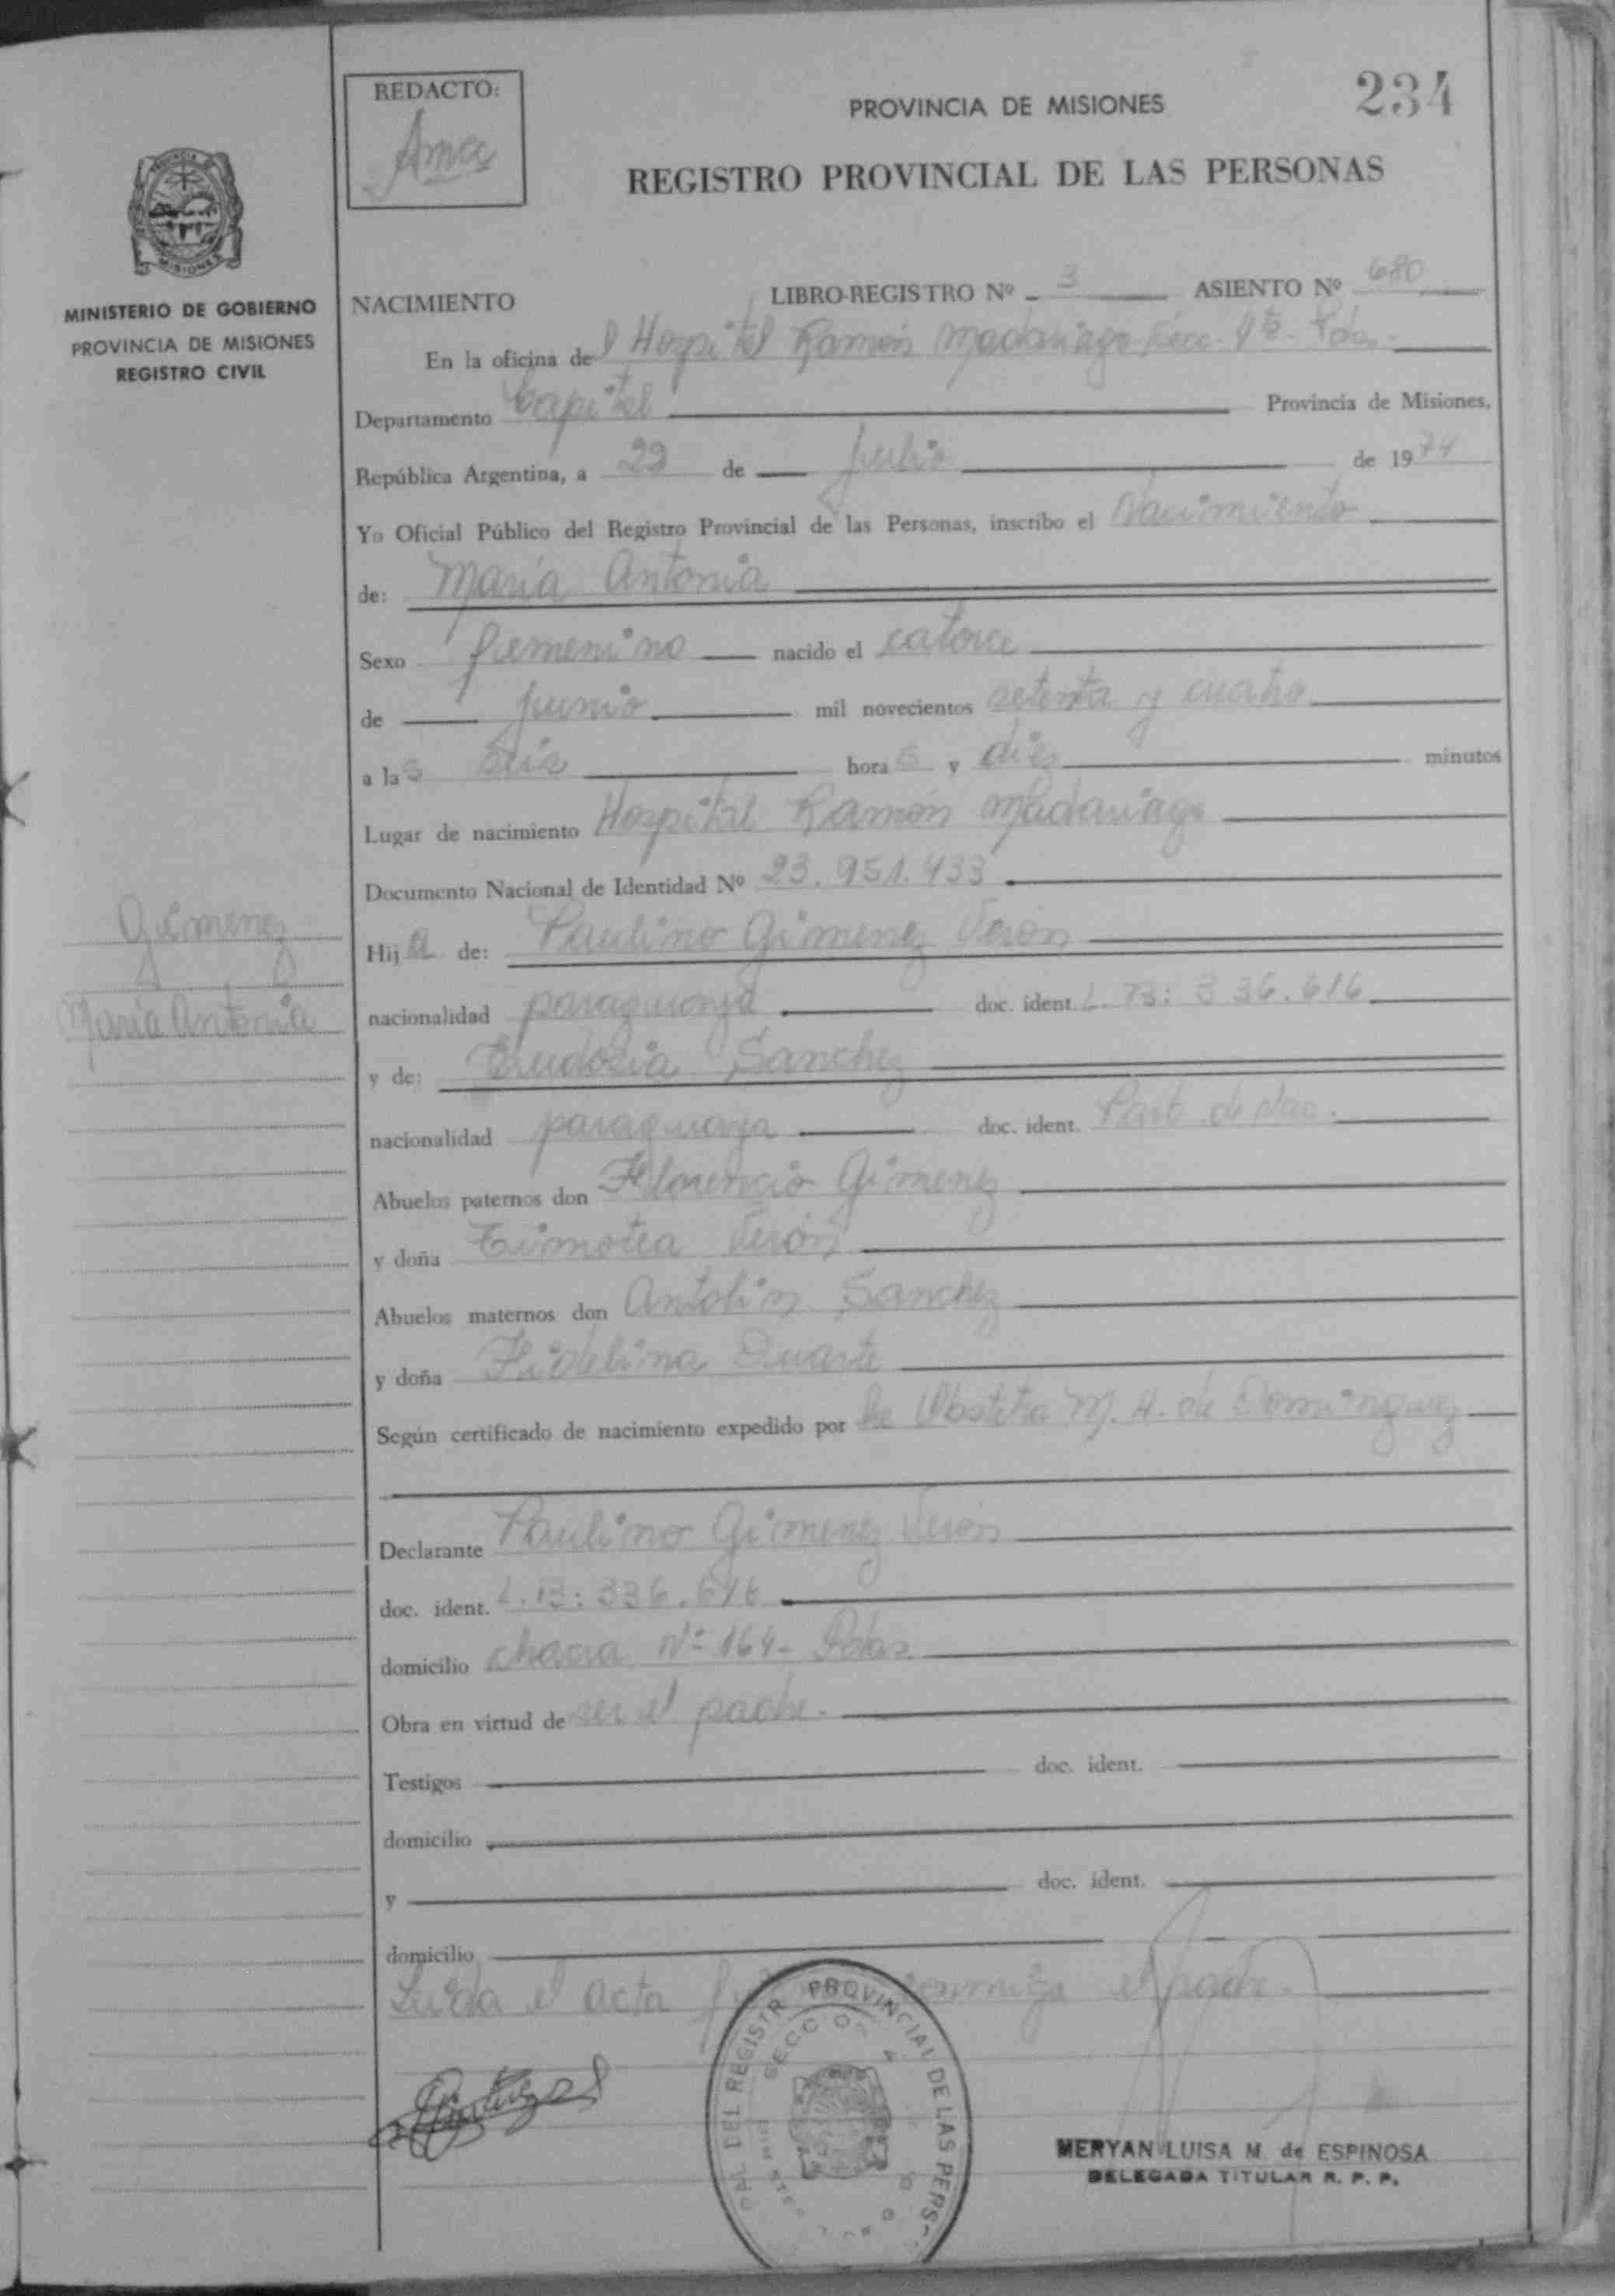 234
REDACTO:
PROVINCIA DE MISIONES
REGISTRO PROVINCIAL DE LAS PERSONAS
MISIONES
MINISTERIO DE GOBIERNO
PROVINCIA DE MISIONES
REGISTRO CIVIL
NACIMIENTO LIBRO-REGISTRO Nº 3 ASIENTO Nº 680
En la oficina del Hospital Ramón Madariaga Secc. 4ta- Pdas.-
Departamento Capital Provincia de Misiones,
República Argentina, a 22 de Julio de 1974
Yo Oficial Público del Registro Provincial de las Personas, inscribo el Nacimiento
de: María Antonia
Sexo femenino nacido el catorce
de junio mil novecientos setenta y cuatro
a las seis horas y diez minutos
Lugar de nacimiento Hospital Ramón Madariaga
Documento Nacional de Identidad Nº 23.951.433
Gimenez
María Antonia
Hija de: Paulino Gimenez Verón
nacionalidad paraguaya doc. ident. L.B: 336.616
y de: Eudosia Sanchez
nacionalidad paraguaya doc. ident. Part. de Nac.
Abuelos paternos don Florencio Gimenez
y doña Timotea Verón
Abuelos maternos don Antolin Sanchez
y doña Fidelina Duarte
Según certificado de nacimiento expedido por la Obstetra M. H. de Dominguez
Declarante Paulino Gimenez Verón
doc. ident. L.B: 336.616
domicilio chacra Nº 164- Pdas
Obra en virtud de ser el padre.
Testigos doc. ident.
domicilio
y doc. ident.
domicilio
Leida el acta conmigo el padre.
DEL REGISTR PROVINCIAL DE LAS PERS
SECCIO
MERYAN LUISA M. de ESPINOSA
DELEGADA TITULAR R. P. P.